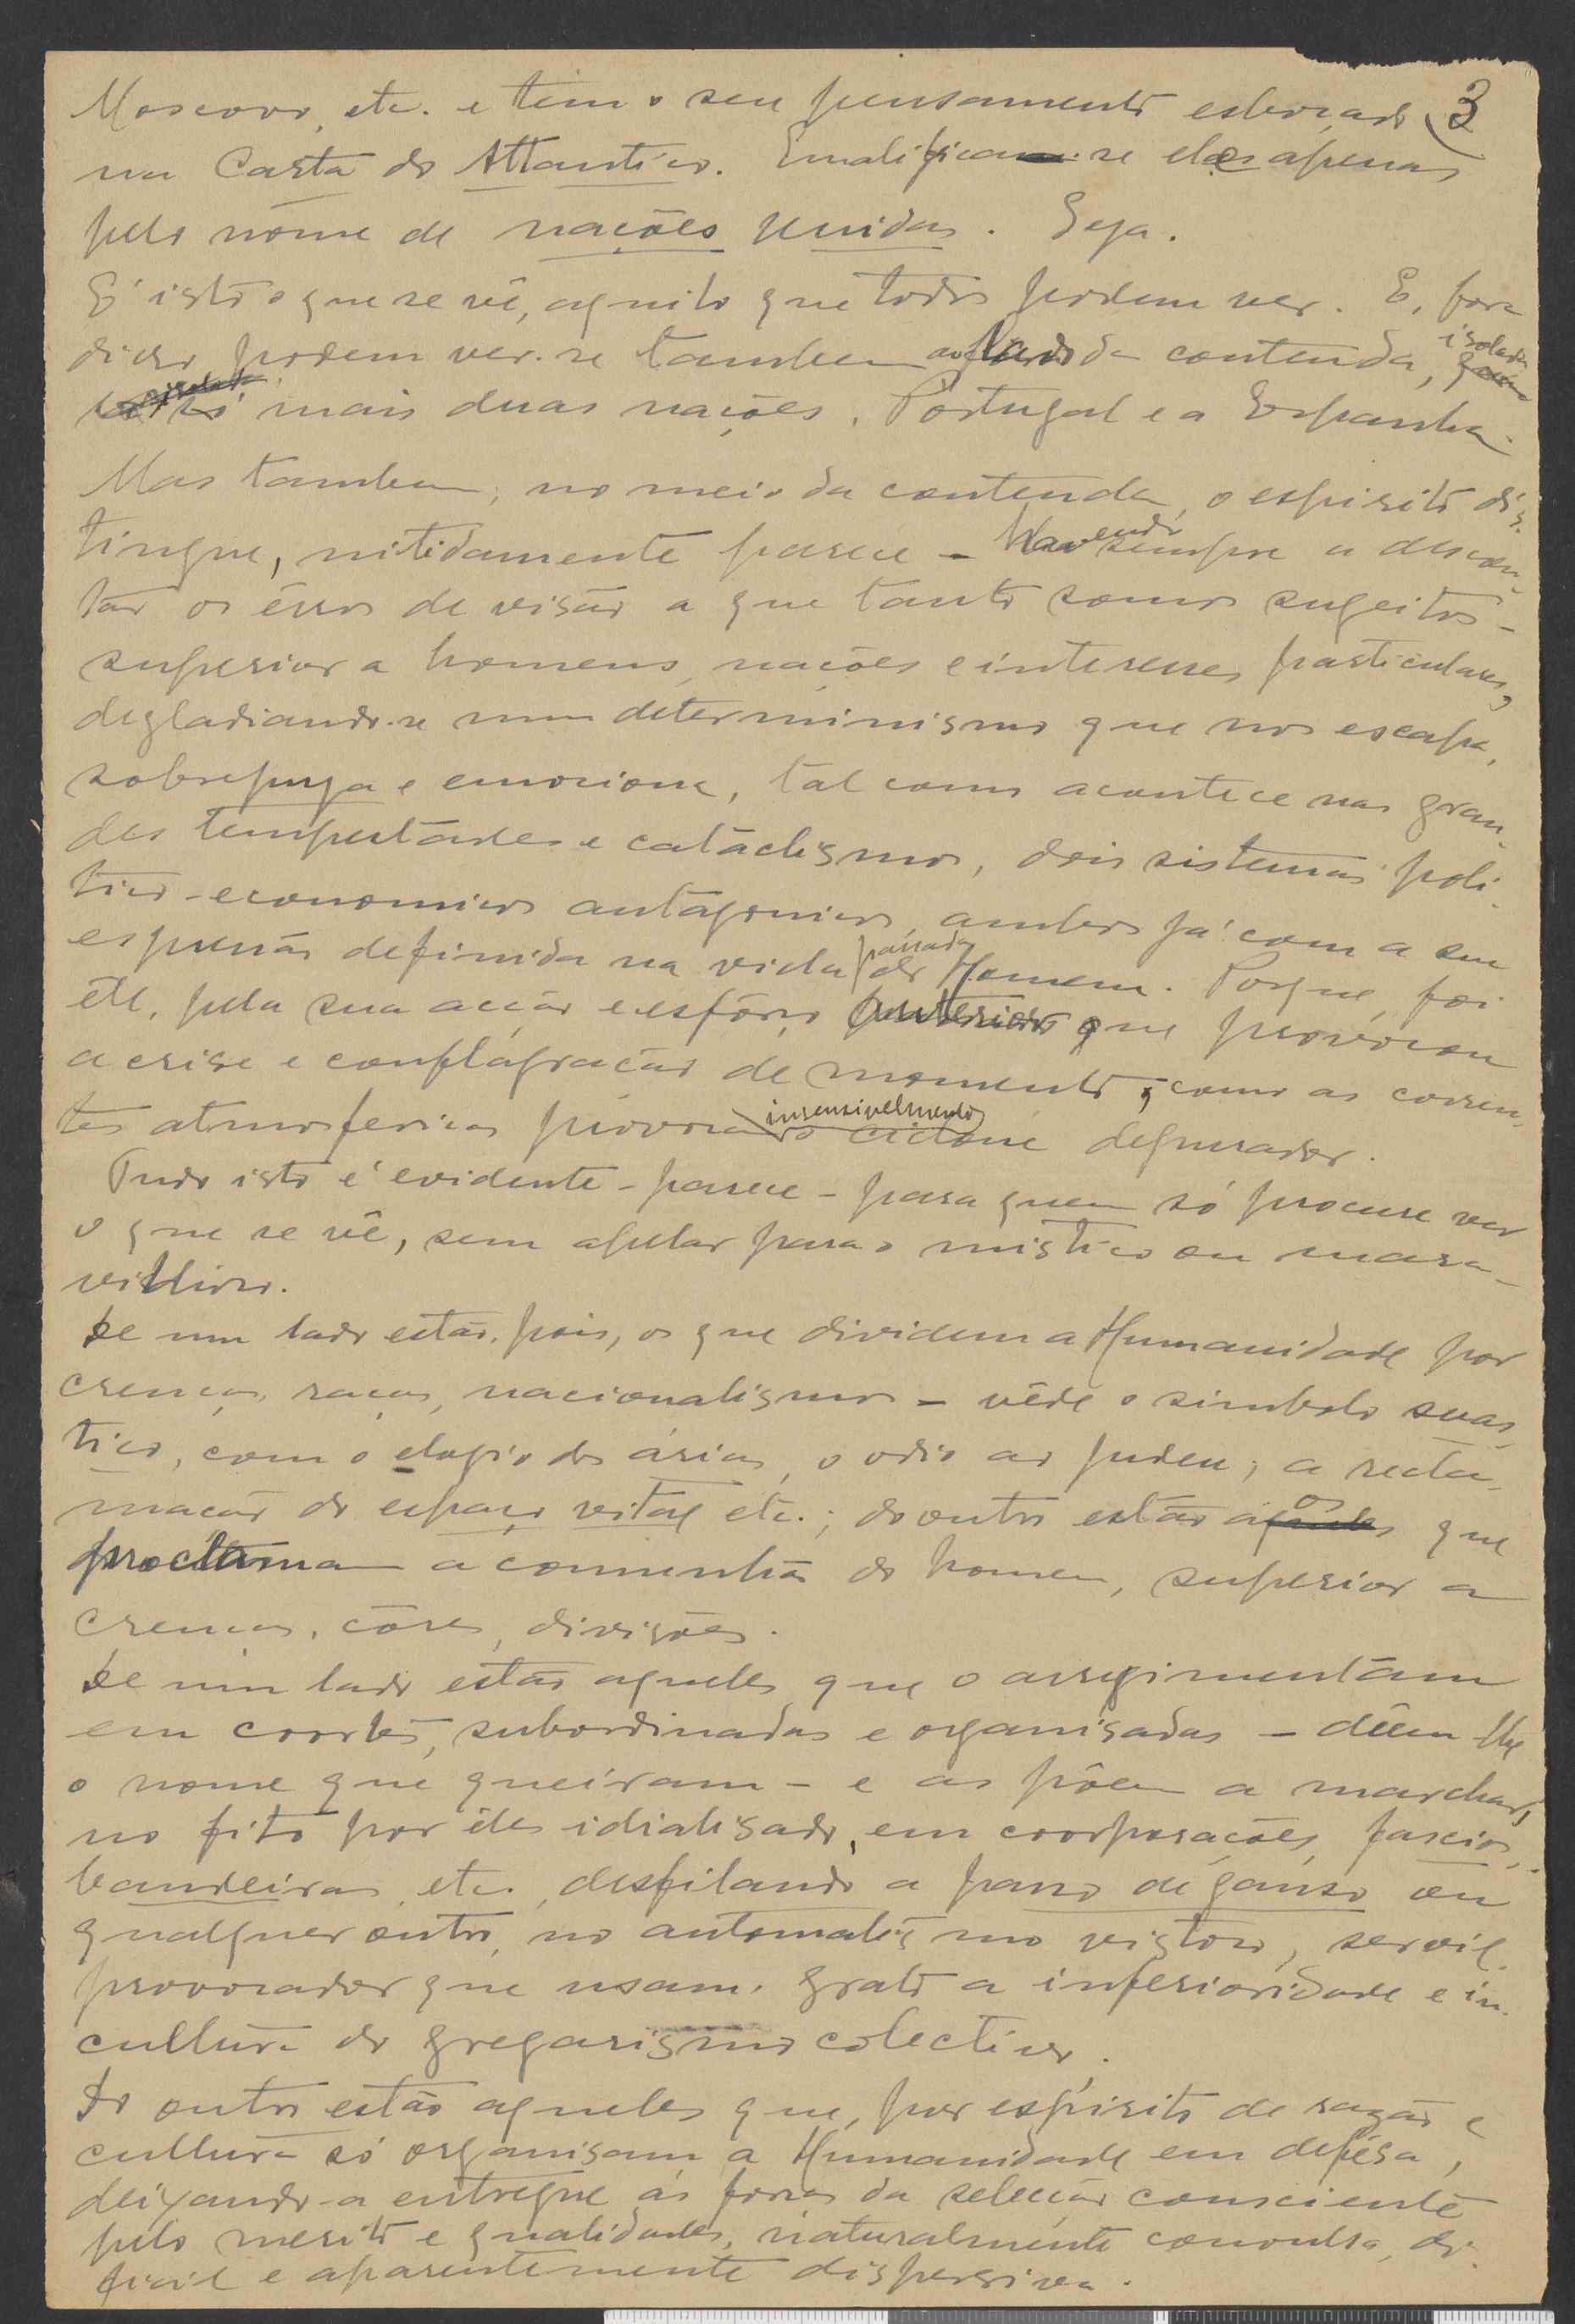 3
Moscovo, etc. e tem o seu pensamento esboçado
na Carta do Atlantico. Qualifica-se eles apenas
pelo nome de nações unidas. Seja.
E' isto o que se vê, aquilo que todos podem ver. E, fora
disso podem ver-se tambem ao lado da contenda, isoladas
só mais duas nações, Portugal e a Espanha.
Mas tambem, no meio da contenda, o espirito dis-
tingue, nitidamente parece - havendo sempre a descon-
tar os érros de visão a que tanto somos sugeitos -
superior a homens, nações e interesses particulares,
degladiando-se num determinismo que nos escapa,
sobrepuja e emociona, tal como acontece nas gran-
des tempestades e cataclismos, dois sistemas poli-
tico-economicos antagonicos, ambos já com a sua
expressão definida na vida passada do Homem. Porque, foi
êle, pela sua acção e esfôrço anterior que provocou
a crise e conflagração de momento, como as corren-
tes atmosfericas provocam insensivelmente o ciclone depurador.
Tudo isto é evidente - parece - para quem só procure ver
o que se vê, sem apelar para o mistico ou mara-
vilhoso.
De um lado estão, pois, os que dividem a Humanidade por
crenças, raças, nacionalismos - vêde o simbolo suas-
tico, com o elogio dos árias, o odio ao judeu, a recla-
mação do espaço vital etc.; do outro estão os que
proclamam a comunhão do homem, superior a
crenças, côres, divisões.
De um lado estão aqueles que o arregimentam
em coortes, subordinadas e organisadas - dêem-lhe
o nome que queiram - e as põem a marchar,
no fito por êles idialisado, em coorporações, fascios,
bandeiras, etc., desfilando a passo de ganso ou
qualquer outro, no automatismo vistoso, servil,
provocador que usam, grato a inferioridade e in-
cultura do gregarismo colectivo.
Do outro estão aqueles que, por espirito de razão e
cultura só organisam a Humanidade em defésa,
deixando-a entregue ás forças da selecção consciente
pelo merito e qualidades, naturalmente convulsa, di-
ficil e aparentemente dispersiva.